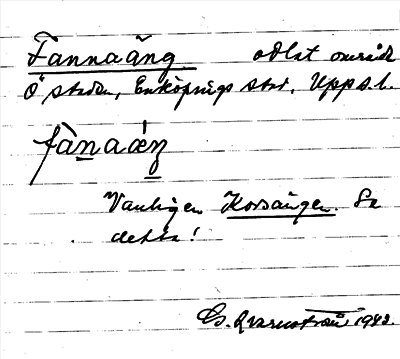 Fannaäng odlat område
Ö staden, Enköpings stad, Uppsl.
fànaǽŋ
Vanligen Korsängen. Se
detta!
G. Qvarnström 1943.